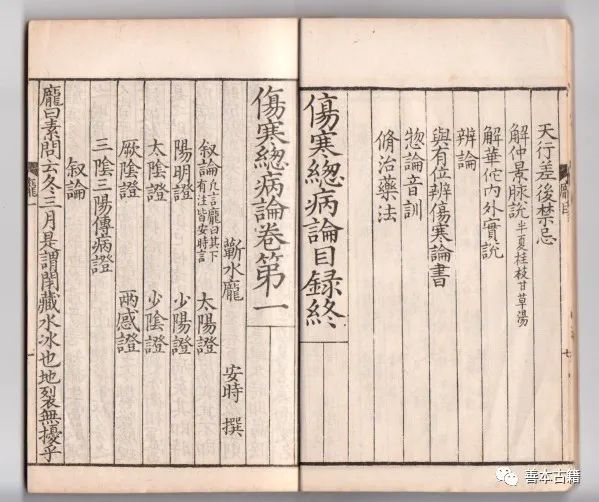 天行差後禁忌
解仲景脉說 半夏桂枝甘草湯
解華佗內外實說
辨論
與有位辨傷寒論書
惣論音訓
脩治藥法
傷寒總病論目録終
傷寒總病論卷第一
蘄水龐 安時 撰
叙論 凡言龐曰其下有注皆安時言 太陽證
陽明證 少陽證
太陰證 少陰證
厥陰證 兩感證
三陰三陽傳病證
叙論
龐曰素問云冬三月是謂閉藏水冰也地裂無擾乎
善本古籍